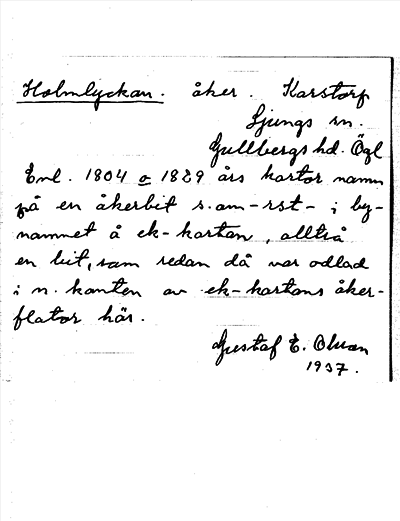 Holmlyckan. åker. Karstorp
Ljungs sn.
Gullbergs hd. Ögl
Enl. 1804 o 1829 års kartor namn
på en åkerbit s.om-rst- i by-
namnet å ek-kartan, alltså
en bit, som redan då var odlad
i n. kanten av ek-kartans åker-
flator här.
Gustaf E. Olsson
1937.